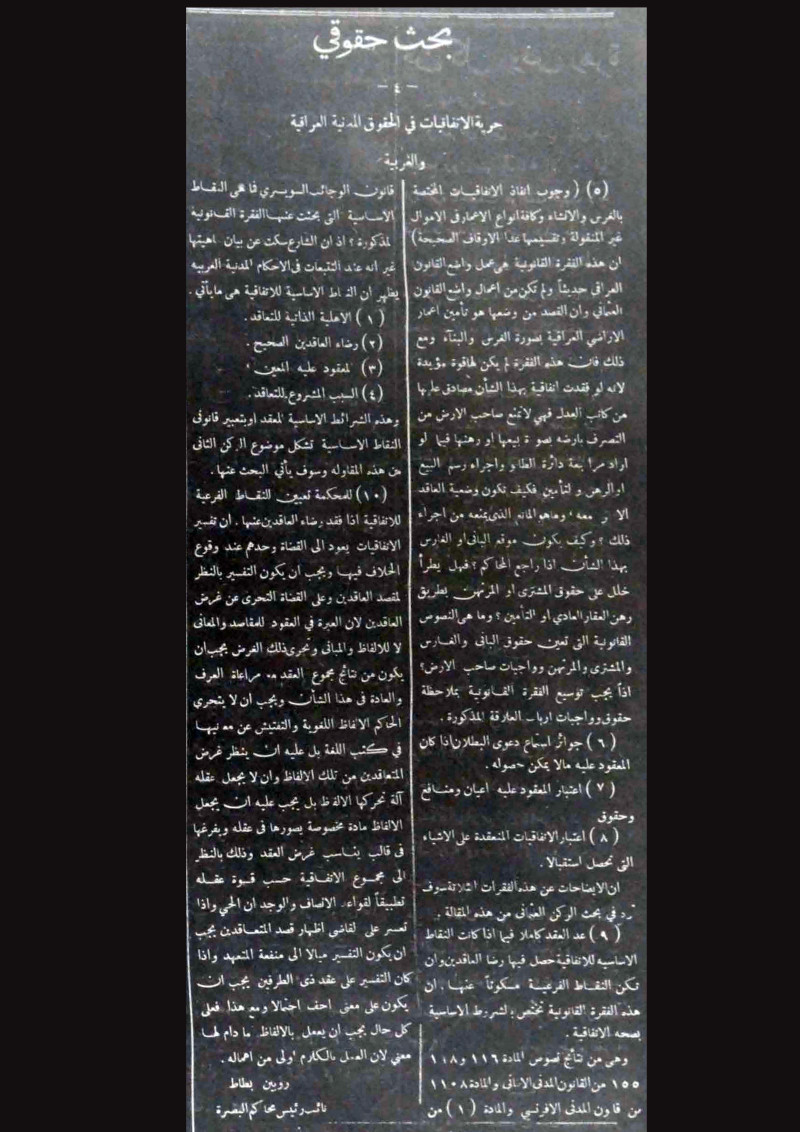 بحث حقوقي
— ٤ —
حرية الاتفاقيات في الحقوق المدنية العراقية
والغربية
(٥) (وجوب انفاذ الاتفاقيات المختصة
بالغرس والانشاء وكافة انواع الاعمار في الاموال
غير المنقولة وتقسيمها عدا الاوقاف الصحيحة)
ان هذه الفقرة القانونية هي عمل واضع القانون
العراقي حديثاً ولم تكن من اعمال واضع القانون
العثماني وان القصد من وضعها هو تأمين اعمار
الاراضي العراقية بصورة الغرس والبنآء ومع
ذلك فان هذه الفقرة لم يكن لها قوة مؤيدة
لانه لو فقدت اتفاقية بهذا الشأن مصادق عليها
من كاتب العدل فهي لا تمنع صاحب الارض من
التصرف بارضه بصورة بيعها او رهنها فيما لو
اراد مراجعة دائرة الطابو واجراء رسم البيع
او الرهن والتأمين فكيف تكون وضعية العاقد
الآخر معه، وما هو المانع الذي يمنعه من اجراء
ذلك؟ وكيف يكون موقع الباني او الغارس
بهذا الشأن اذا راجع المحاكم؟ فهل يطرأ
خلل على حقوق المشترى او المرتهن بطريق
رهن العقار العادي او التأمين؟ وما هي النصوص
القانونية التى تعين حقوق البانى والغارس
والمشترى والمرتهن وواجبات صاحب الارض؟
اذاً يجب توسيع الفقرة القانونية بملاحظة
حقوق وواجبات ارباب العلاقة المذكورة.
(٦) جوائز استماع دعوى البطلان اذا كان
المعقود عليه مالا يمكن حصوله.
(٧) اعتبار المعقود عليه اعيان ومنافع
وحقوق
(٨) اعتبار الاتفاقيات المنعقدة على الاشياء
التى تحصل استقبالا.
ان الايضاحات عن هذه الفقرات الثلاثة سوف
ترد في بحث الركن العثمانى من هذه المقالة.
(٩) عد العقد كاملا فيما اذا كانت النقاط
الاساسيه للاتفاقية حصل فيها رضا العاقدين وان
تكن النقاط الفرعية مسكوتاً عنها. ان
هذه الفقرة القانونية تختص بالشروط الاساسية
بصحه الاتفاقية.
وهي من نتائج نصوص المادة ١١٦ و١١٨
١٥٥ من القانون المدنى الالمانى والمادة ١١٠٨
من قانون المدنى الافرنسي والمادة (١) من
قانون الوجائب السويسري فما هي النقاط
الاساسية التى بحثت عنها الفقرة القانونية
المذكورة؟ اذ ان الشارع سكت عن بيان ماهيتها
غير انه عند التتبعات في الاحكام المدنية الغربيه
يظهر ان النقاط الاساسية للاتفاقية هي ما يأتي.
(١) الاهلية الذاتية للتعاقد.
(٢) رضاء العاقدين الصحيح.
(٣) المعقود عليه المعين.
(٤) السبب المشروع للتعاقد.
وهذه الشرائط الاساسية للعقد او بتعبير قانونى
النقاط الاساسية تشكل موضوع الركن الثانى
من هذه المقاوله وسوف يأتي البحث عنها.
(١٠) للمحكمة تعيين النقاط الفرعية
للاتفاقية اذا فقد رضاء العاقدين عنها. ان تفسير
الاتفاقيات يعود الى القضاة وحدهم عند وقوع
الخلاف فيها ويجب ان يكون التفسير بالنظر
لمقصد العاقدين وعلى القضاة التحرى عن غرض
العاقدين لان العبرة في العقود للمقاصد والمعانى
لا للالفاظ والمبانى وتحرى ذلك الغرض يجب ان
يكون من نتائج مجموع العقد مع مراعاة العرف
والعادة في هذا الشأن ويجب ان لا يتحرى
الحاكم الالفاظ اللغوية والتفتيش عن معانيها
في كتب اللغة بل عليه ان ينظر غرض
المتعاقدين من تلك الالفاظ وان لا يجعل عقله
آلة تحركها الالفاظ بل يجب عليه ان يجعل
الالفاظ مادة مخصوصة يصورها في عقله ويفرغها
في قالب يناسب غرض العقد وذلك بالنظر
الى مجموع الاتفاقية حسب قسوة عقله
تطبيقاً لقواعد الانصاف والوجدان الحي واذا
تعسر على القاضى اظهار قصد المتعاقدين يجب
ان يكون التفسير ميالا الى منفعة المتعهد واذا
كان التفسير على عقد ذي الطرفين يجب ان
يكون على معنى اخف احتمالا ومع هذا فعلى
كل حال يجب ان يعمل بالالفاظ ما دام لها
معنى لان العمل بالكلام اولى من اهماله.
روبين بطاط
نائب رئيس محاكم البصرة